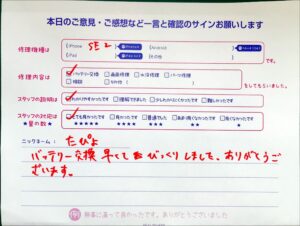 本日のご意見・ご感想など一言と確認のサインお願いします
修理機種は
iPhone SE 2
Android
iPad
その他
修理内容は
バッテリー交換 画面修理 水没修理 パーツ修理
をしてもらいました。
スタッフの説明は わかりやすかったです 理解できました 少しわかりにくかったです 難しかったです
スタッフの対応は とても良かったです 良かったです 普通でした あまり良くなかったです 良くなかったです
★星の数★ ★★★★★ ★★★★ ★★★ ★★ ★
ニックネーム: たぴよ
バッテリー交換 早くて びっくりしました。ありがとうご
ざいます。
無事に直って良かったです。ありがとうございました